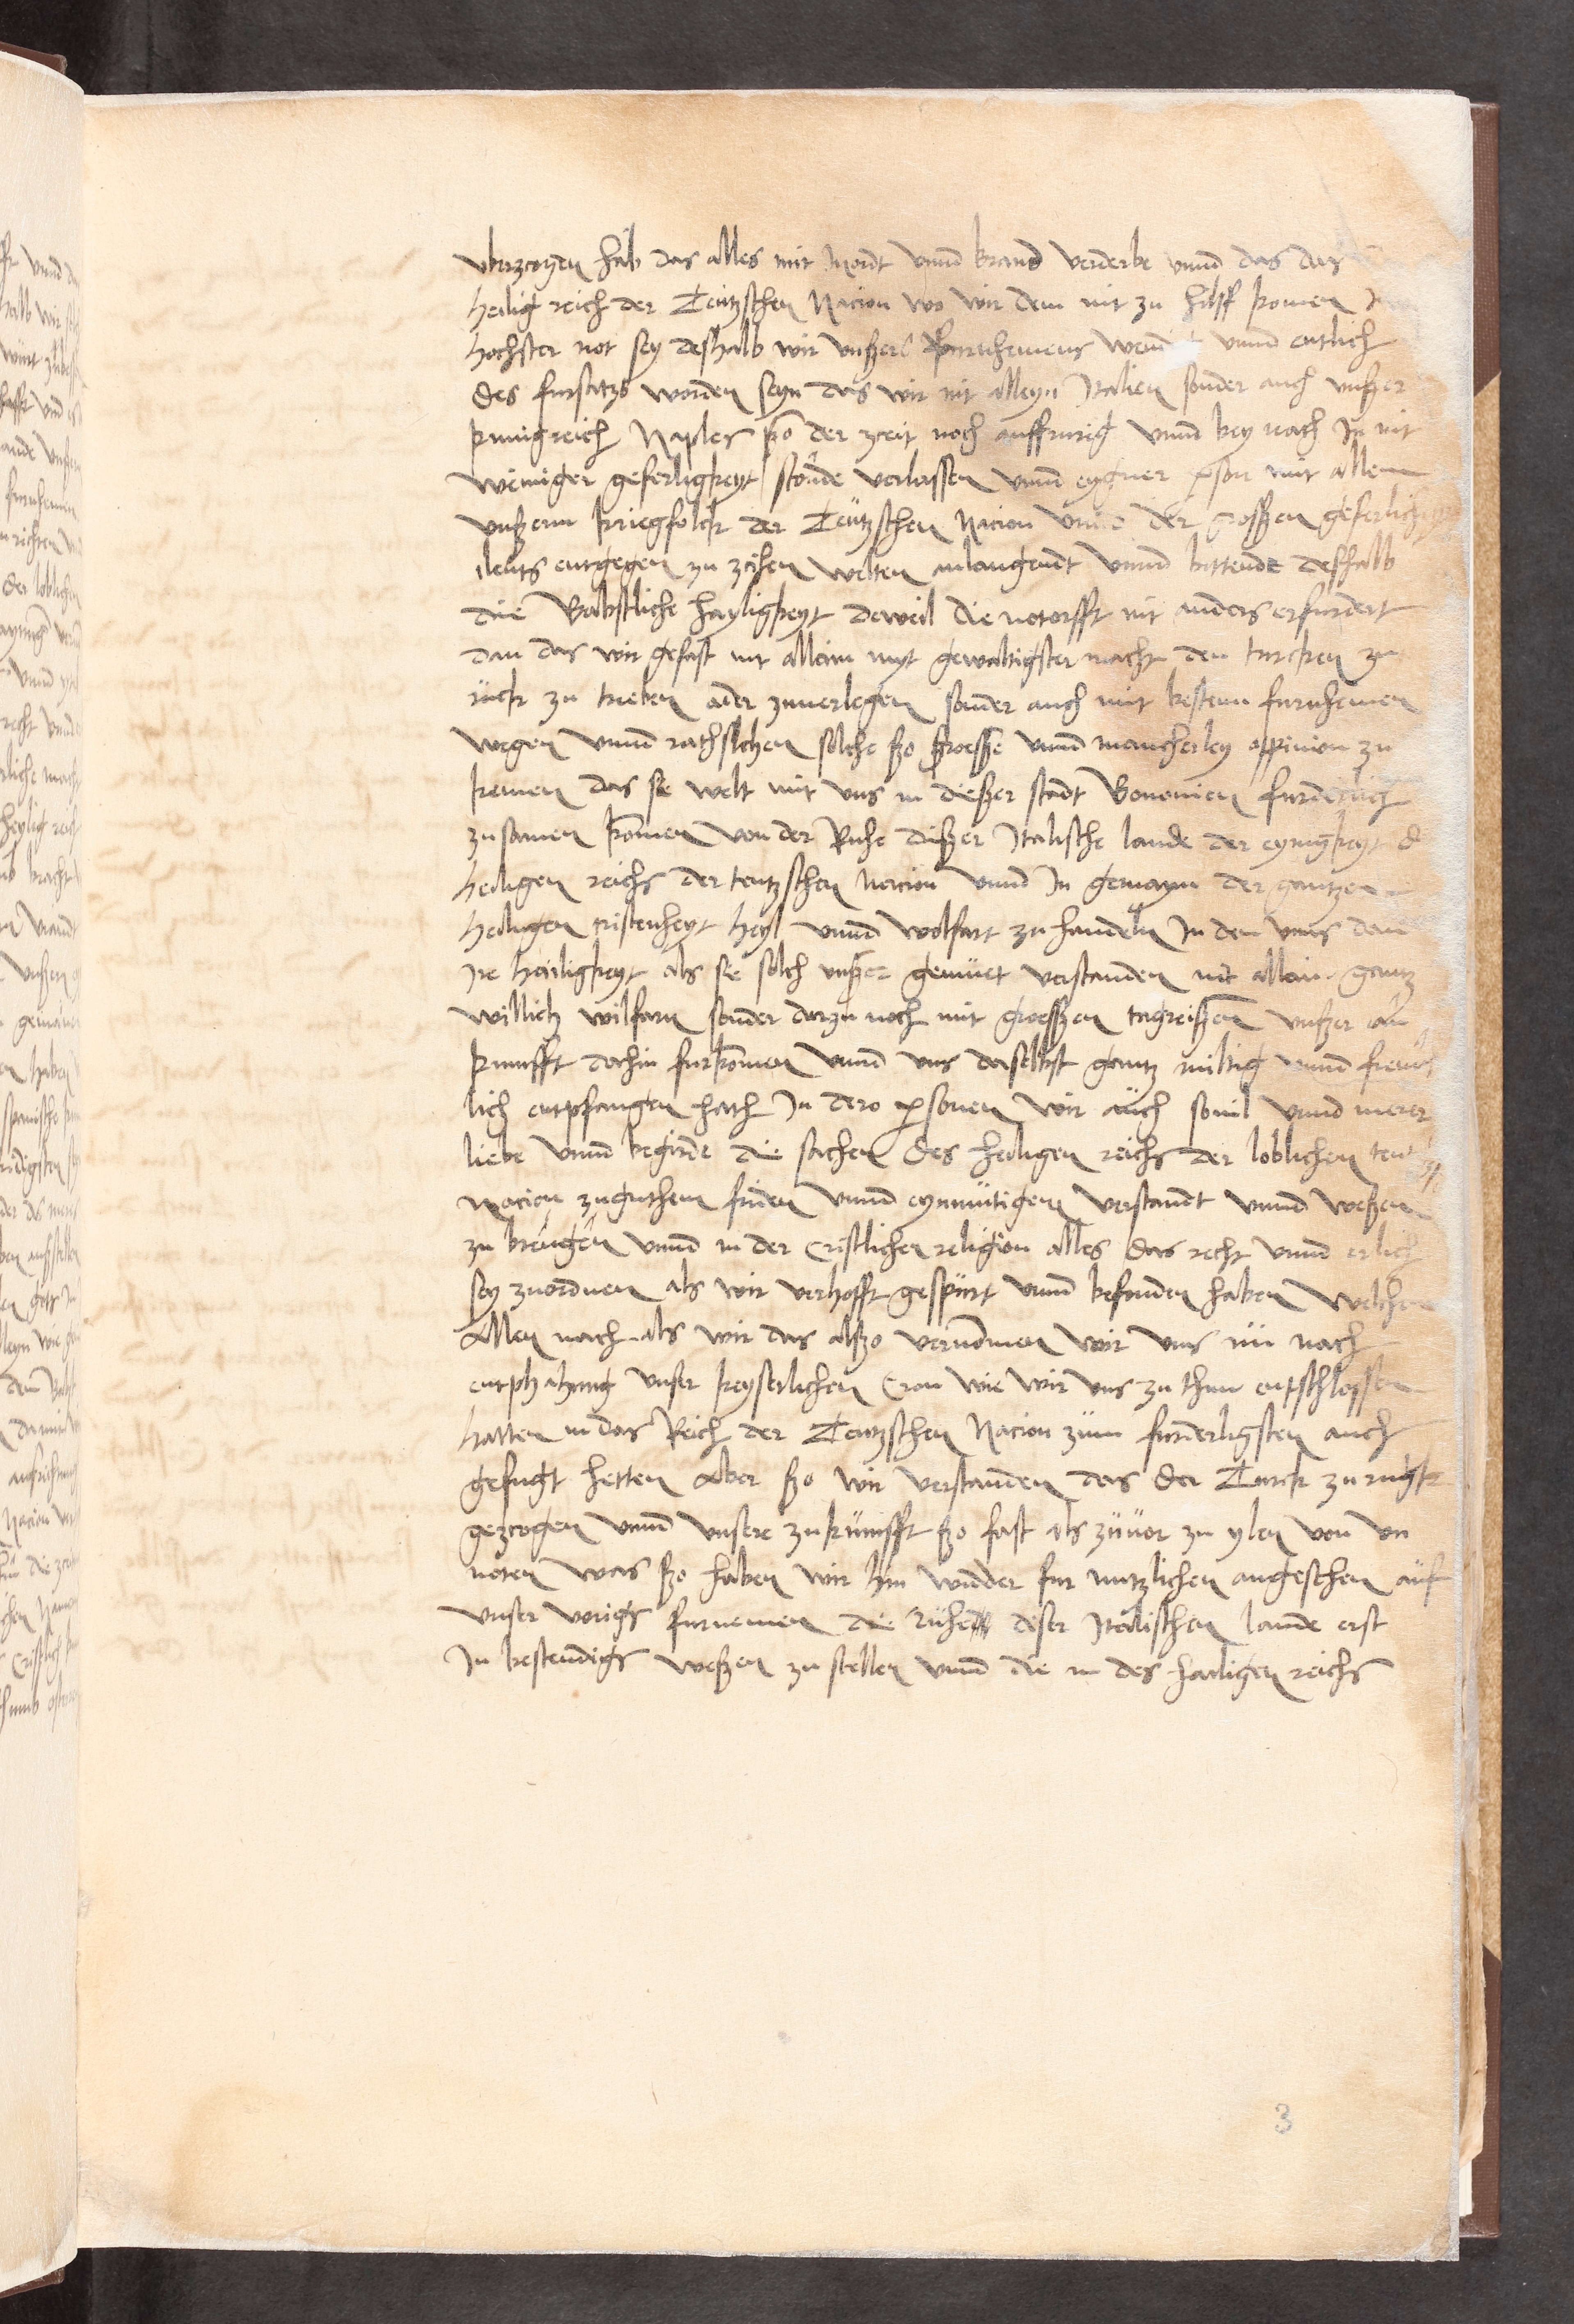 uberzcogen hab das alles mit mordt vnnd brand verderbe vnnd das das
heilig reich der Teutzschen Nacion wo wir dem nit zu hilff komen
hochster not sey deshalb wir vnßers furnhemens vnnd entlich
des fursatzs worden seyn das wir nit alleyn Italien sonder auch vnßer
kunigreich Naples ßo der zceit noch auffrurig vnnd bey nach In nit
weiniger geferligkeyt stonde verlassen vnnd eygner person mit allem
vnßerm kriegfolck der Teutzschen Nacion vnnd der grossen geferlich
ilents entgegen zu zcihen welten anlangendt vnnd bittende deshalb
die Babstliche hayligkeyt deweil die notorfft nit anders erfurdert
dan das wir gefast nit allain myt gewaltigster macht den turcken zu
ruck zu trieben ader zuuerlegen sonder auch mit bestem furnhemen
wegen vnnd rathslehen solche ßo groesse vnnd mancherley oppinion zu
kemen das sie welt mit vns in dießer stadt Bononien furderlich
zusamen komen von der Ruhe dießer Italische lande der eynigkeyt d
heiligen reichs der teutzschen Nacion vnnd In gemayn der gantzen
heiligen cristenheyt heyl vnnd wolfart zu handeln In dem vnns dan
Ire heiligkeyt als sie solch vnßer gemuet verstanden nit allain gantz
willich wilfarn sonder darzu noch mit groessen tagreißen vnßer an
kunfft dahin furkomen vnnd vns daselbst gantz miltig vnnd freunt
lich entpfangen hath In dero personen wir auch souil vnnd merer
liebe vnnd begirde die sachen des heiligen reichs der loblichen teutz
Nacion zuguthem friden vnnd eynmutigem verstandt vnnd weßen
zu brengen vnnd in der Cristlichen religion alles das recht vnnd erlich
sey zuordnen als wir verhofft gespurt vnnd befunden haben welchem
Allen nach als wir das alßo vernomen wir vns nu nach
entphahung vnser keyserlichen Cron wie wir vns zu thun entschlossen
hatten in das Reich der Teutzschen Nacion zum furderligsten auch
gefugt hetten Aber ßo wir verstanden das der Turck zurugk
gezcogen vnnd vnsere zukunfft ßo fast als zuuor zu ylen von vn
noten was ßo haben wir hin widder fur nutzlichen angesehen auf
vnser vorigs furnemen die ruhe diser Italischen lande erst
In bestendigs weßen zu stellen vnnd die in des hailigen reichs
3